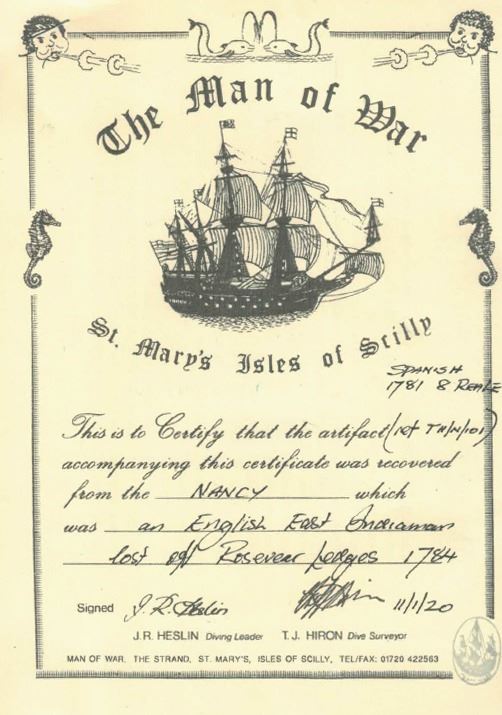 The Man of War
St. Mary's Isles of Scilly
SPANISH
1781 8 REALE
This is to Certify that the artifact (ref TH/N/101)
accompanying this certificate was recovered
from the NANCY which
was an English East Indiaman
lost off Rosevear Ledges 1784
Signed J.R. Heslin 11/1/20
J.R. HESLIN Diving Leader T.J. HIRON Dive Surveyor
MAN OF WAR, THE STRAND, ST. MARY'S, ISLES OF SCILLY, TEL/FAX: 01720 422563